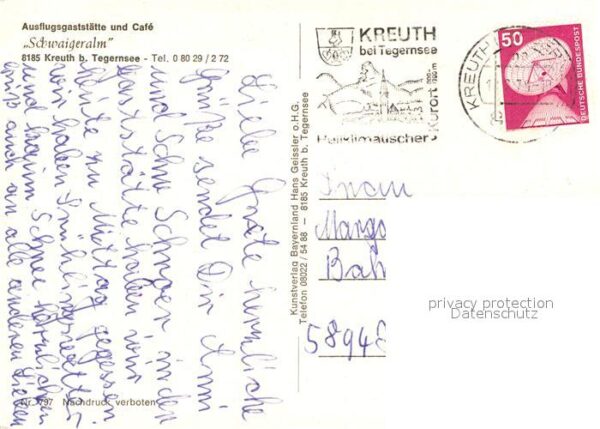 Ausflugsgaststätte und Café
„Schwaigeralm"
8185 Kreuth b. Tegernsee - Tel. 0 80 29 / 2 72
Liebe herrliche
Grüße sendet Dir
und Schw in der
Gaststätte haben wir
heute zu Mittag gegessen
wir haben Frühlingswetter
und kaum Schnee
grüß auch an alle anderen
Nr. 797 Nachdruck verboten
Kunstverlag Bayernland Hans Geissler o.H.G.
Telefon 08022 / 54 88 — 8185 Kreuth b. Tegernsee
KREUTH
bei Tegernsee
Heilklimatischer Kurort
KREUTH
50
DEUTSCHE BUNDESPOST
Frau
Margo
Bah
58948
privacy protection
Datenschutz